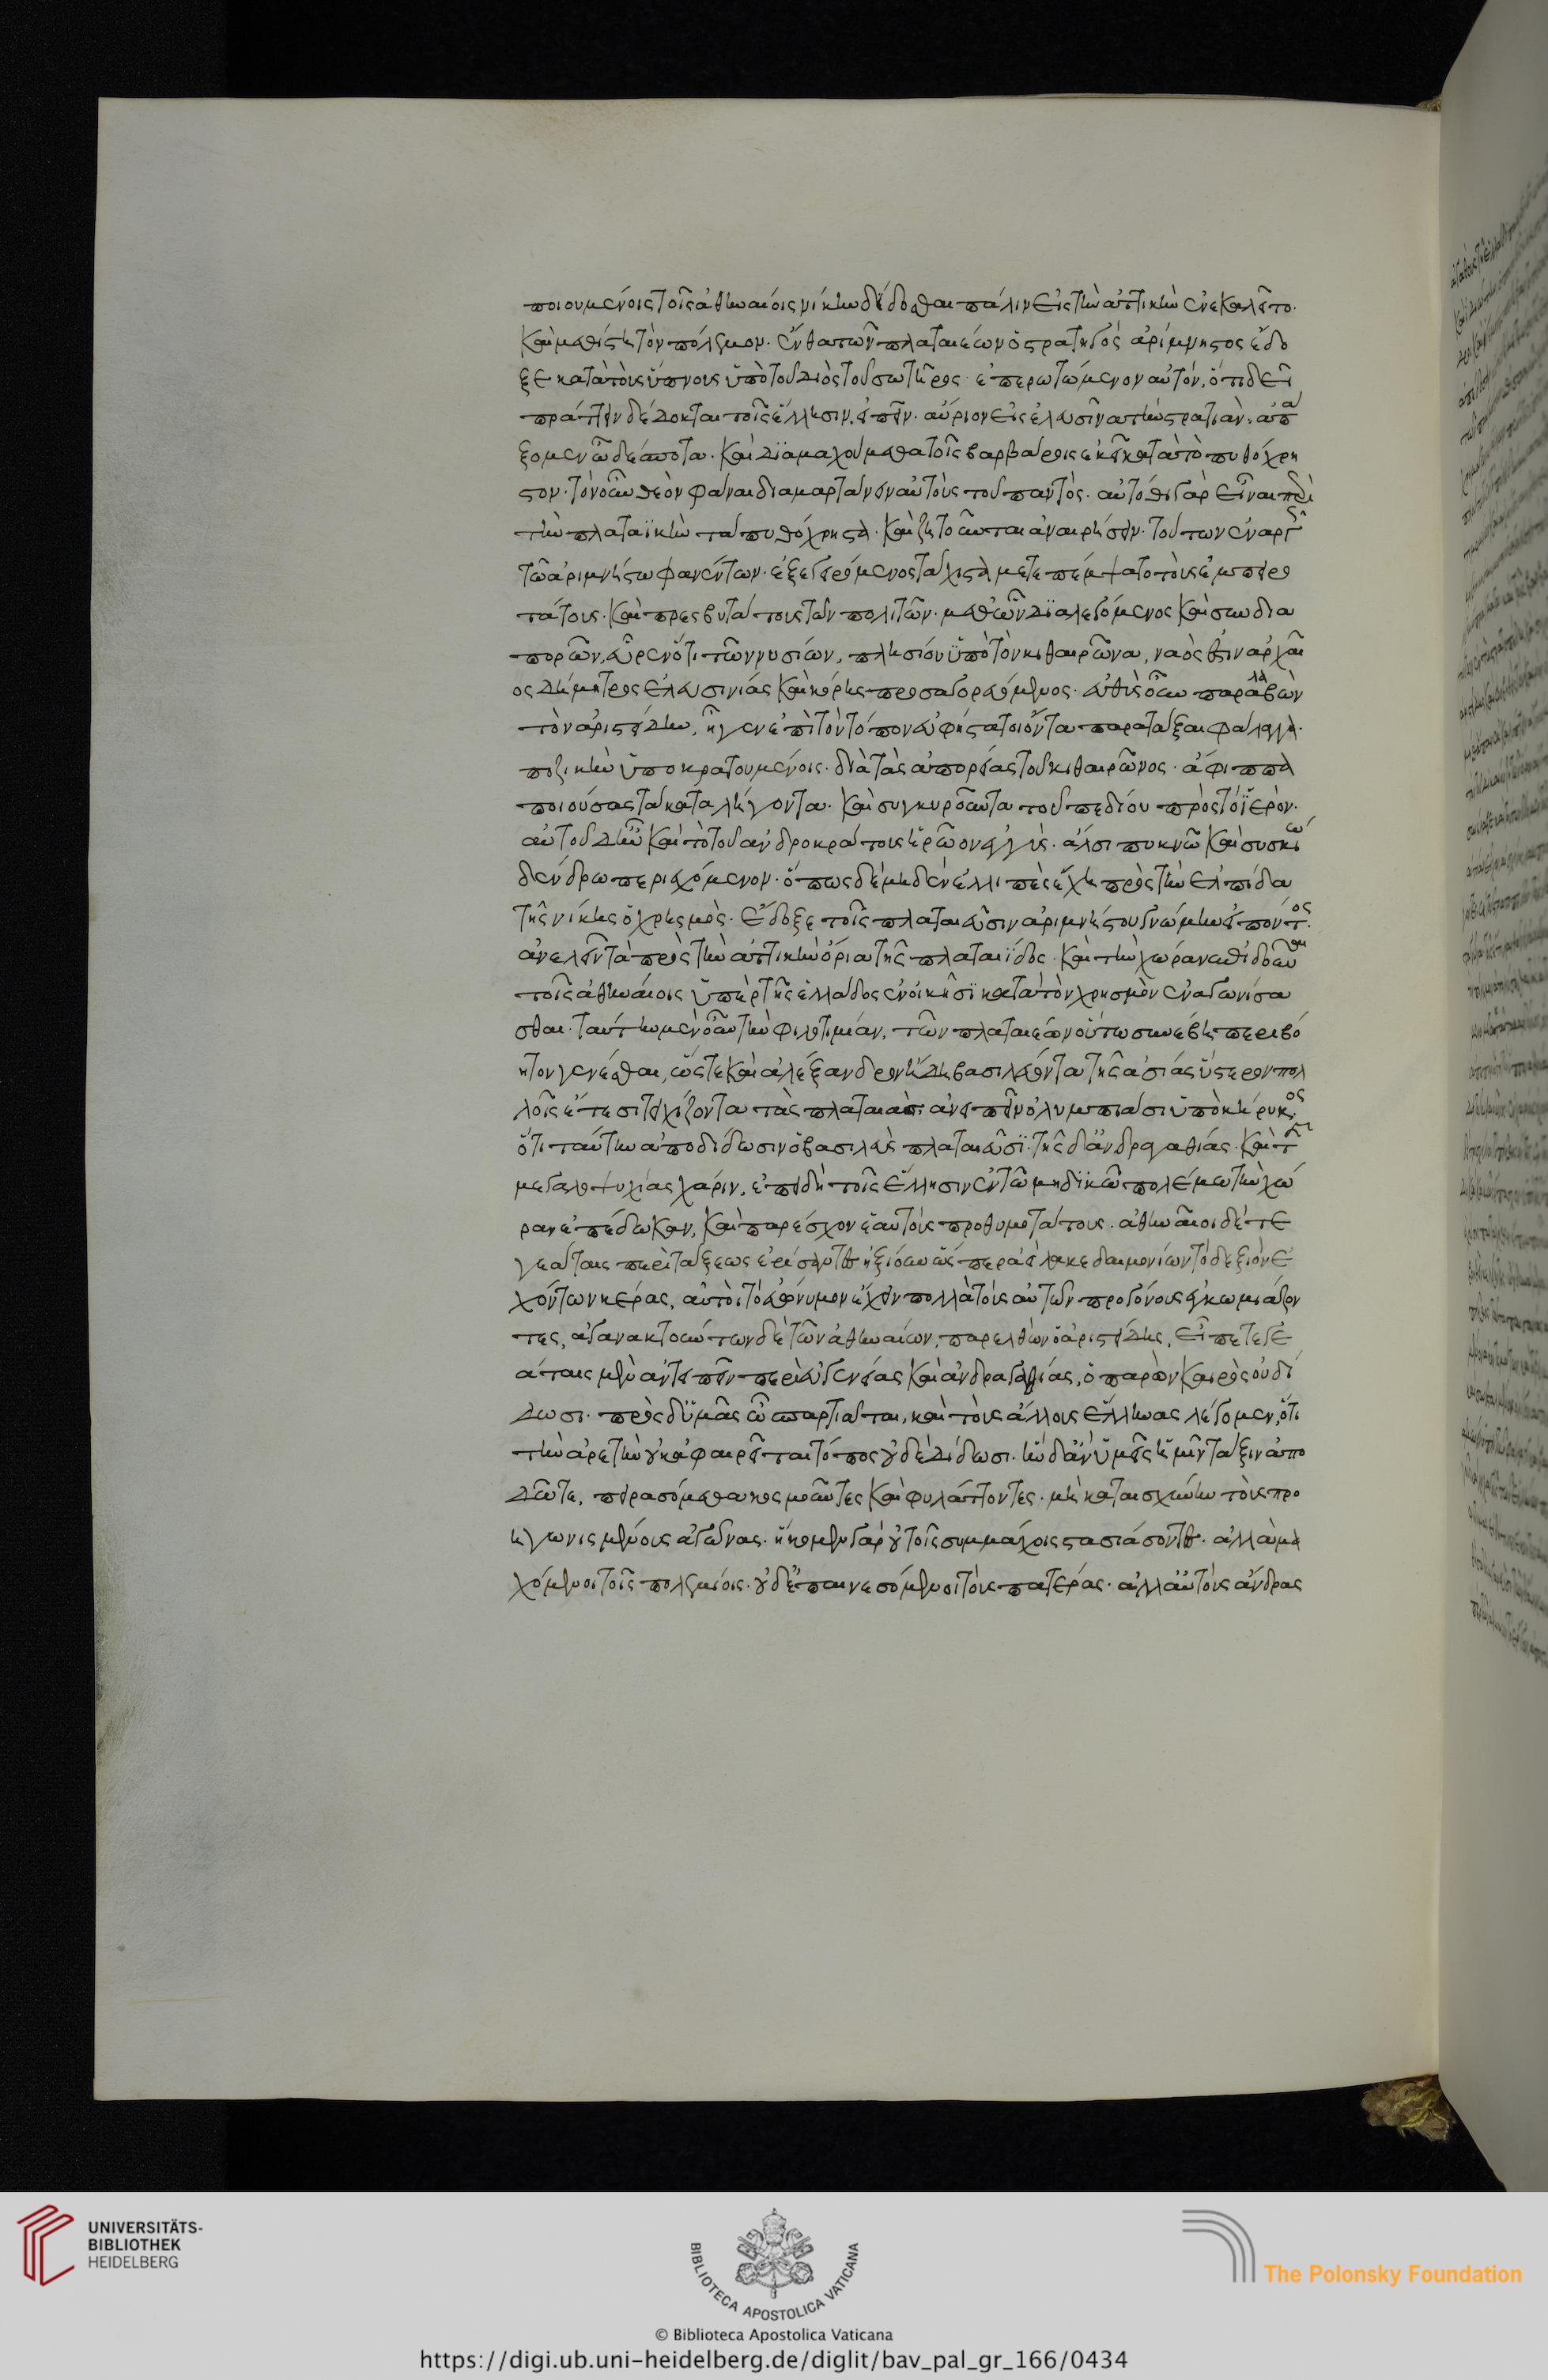 ποιουμένοις τοῖς ἀθηναίοις νίκην δίδοσθαι πάλιν εἰς τὴν ἀττικὴν ἐνεκαλεῖτο.
καὶ μεθίστη τὸν πόλεμον. ἔνθα τῶν πλαταιέων ὁ στρατηγὸς ἀρίμνηστος ἔδο
ξε κατὰ τοὺς ὕπνους ὑπὸ τοῦ διὸς τοῦ σωτῆρος ἐπερωτώμενον αὐτόν, ὅτι δεῖ
πράττειν δέδοκται τοῖς ἕλλησιν, εἰπεῖν. αὔριον εἰς ἐλευσῖνα τὴν στρατιὰν. ἀπά
ξομεν ὦ δέσποτα. καὶ διαμαχούμεθα τοῖς βαρβάροις ἐκεῖ κατὰ τὸ πυθόχρη
στον. τὸν οὖν θεὸν φάναι διαμαρτάνειν αὐτοὺς τοῦ παντός. αὐτόθι γὰρ εἶναι περὶ
τὴν πλαταϊκὴν τὰ πυθόχρηστα. καὶ ζητοῦνται ἀναιρήσειν. τούτων ἐναργῶς
τῶ ἀριμνήστω φανέντων. ἐξεγειρόμενος τάχιστα μετεπέμψατο τοὺς ἐμπειρο
τάτους. καὶ πρεσβυτάτους τῶν πολιτῶν. μεθ' ὧν διαλεγόμενος καὶ συνδια
πορῶν, εὗρεν ὅτι τῶν νυσιών, πλησίον ὑπὸ τὸν κιθαιρῶνα, ναός ἐστιν ἀρχαῖ
ος δήμητρος ἐλευσινίας καὶ κόρης προσαγορευόμενος. εὐθὺς οὖν παραλαβὼν
τὸν ἀριστείδην, ἦγεν ἐπὶ τὸν τόπον εὐφυέστατον ὄντα παρατάξαι φάλαγγα.
πεζικὴν ὑποκρατουμένοις. διὰ τὰς ἀπορείας τοῦ κιθαιρῶνος. ἄφιππα
ποιούσας τὰ καταλήγοντα. καὶ συγκυροῦντα τοῦ πεδίου πρὸς τὸ ἱερόν.
αὐτοῦ δ' ἦν καὶ τὸ τοῦ ἀνδροκράτους ἡρῶον ἐγγὺς. ἄλσει πυκνῶ καὶ συσκίω
δένδρω περιεχόμενον. ὅπως δὲ μηδὲν ἐλλιπὲς ἔχη πρὸς τὴν ἐλπίδα
τῆς νίκης ὁ χρησμὸς. ἔδοξε τοῖς πλαταιεῦσιν ἀριμνήστου γνώμην εἰπόντος.
ἀνελεῖν τὰ πρὸς τὴν ἀττικὴν ὅρια τῆς πλαταιΐδος. καὶ τὴν χώραν ἐπιδοῦναι
τοῖς ἀθηναίοις ὑπὲρ τῆς ἑλλάδος ἐν οἰκεῖ κατὰ τὸν χρησμὸν ἐναγωνίσα
σθαι. ταύτην μὲν οὖν τὴν φιλοτιμίαν, τῶν πλαταιέων οὕτω συνέβη περιβό
ητον γενέσθαι, ὥστε καὶ ἀλέξανδρον ἤδη βασιλεύοντα τῆς ἀσίας ὕστερον πολ
λοῖς ἔτεσι τειχίζοντα τὰς πλαταιὰς ἀνειπεῖν ὀλυμπιάσι ὑπὸ κήρυκος.
ὅτι ταύτην ἀποδίδωσιν ὁ βασιλεὺς πλαταιεῦσι. τῆς ἀνδραγαθίας. καὶ τῆς
μεγαλοψυχίας χάριν, ἐπειδὴ τοῖς ἕλλησιν ἐν τῶ μηδικῶ πολέμω τὴν χώ
ραν ἐπέδωκαν, καὶ παρέσχον ἑαυτοὺς προθυμοτάτους. ἀθηναῖοι δὲ τε
γεάταις περὶ τάξεως ἐρίσαντες ἠξίουν ὥσπερ ἀεὶ λακεδαιμονίων τὸ δεξιὸν ἐ
χόντων κέρας, αὐτοὶ τὸ εὐώνυμον ἔχειν πολλὰ τοὺς αὐτῶν προγόνους ἐγκωμιάζον
τες, ἀγανακτούντων δὲ τῶν ἀθηναίων, παρελθὼν ὁ ἀριστείδης, εἶπε τεγε
άταις μὲν ἀντειπεῖν περὶ εὐγενείας καὶ ἀνδραγαθίας, ὁ παρὼν καιρὸς οὐ δί
δωσι. πρὸς δ' ὑμᾶς ὦ σπαρτιάται, καὶ τοὺς ἄλλους ἕλληνας λέγομεν, ὅτι
τὴν ἀρετὴν οὐκ ἀφαιρεῖται τόπος οὐδὲ δίδωσι. ἣν δ' ἂν ὑμεῖς ἡμῖν τάξιν ἀπο
δῶτε, πειρασόμεθα κοσμοῦντες καὶ φυλάττοντες. μὴ καταισχύνειν τοὺς προ
ηγωνισμένους ἀγῶνας. ἥκομεν γὰρ οὐ τοῖς συμμάχοις στασιάσοντες. ἀλλὰ μα
χόμενοι τοῖς πολεμίοις. οὐδ' ἐπαινεσόμενοι τοὺς πατέρας. ἀλλ' αὑτοὺς ἄνδρας
UNIVERSITÄTS-
BIBLIOTHEK
HEIDELBERG
BIBLIOTECA APOSTOLICA VATICANA
The Polonsky Foundation
© Biblioteca Apostolica Vaticana
https://digi.ub.uni-heidelberg.de/diglit/bav_pal_gr_166/0434